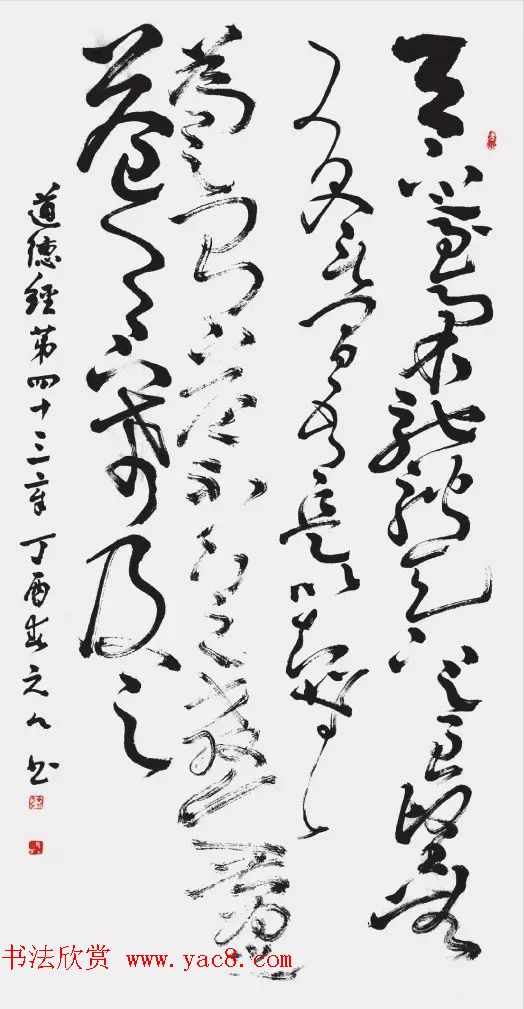 天下之至柔馳騁天下之至堅無
有入无間吾是以知無
為之有益不言之教無為之
益天下希及之
道德經第四十三章 丁酉春元书
书法欣赏 www.yac8.com